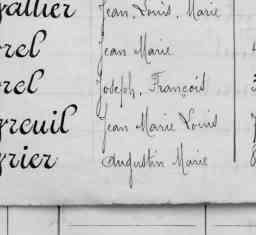 allier Jean, Louis, Marie
rel Jean Marie
rel Joseph, François
reuil Jean Marie Louis
rier Augustin Marie